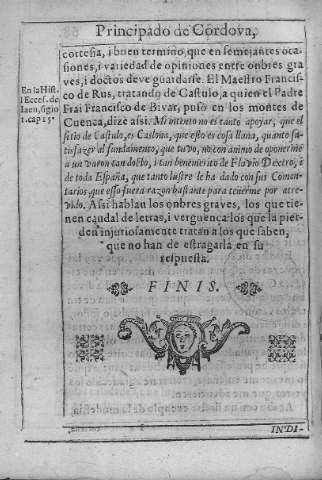 Principado de Cordova,
cortesia, i buen termino, que en semejantes oca-
siones, i variedad de opiniones entre onbres gra-
ves, i doctos deve guardarse. El Maestro Francis-
co de Rus, tratando de Castulo, a quien el Padre
Frai Francisco de Bivar, puso en los montes de
Cuenca, dize assi. Mi intento no es tanto apoyar, que el
sitio de Castulo, es Caslona, que esso es cosa llana, quanto sa-
tisfazer al fundamento, que tuvo, no con animo de oponerme
a un varon tan docto, i tan benemerito de Flavio Dextro, i
de toda España, que tanto lustre le ha dado con sus Comen-
tarios, que esso fuera razon bastante para tenerme por atre-
vido. Assi hablan los onbres graves, los que tie-
nen caudal de letras, i verguença: los que la pier-
den injuriosamente tratan a los que saben,
que no han de estragarla en su
respuesta.
En la Hist.
l Eccles. de
Iaen, siglo
1. cap 15.
FINIS.
INDI-